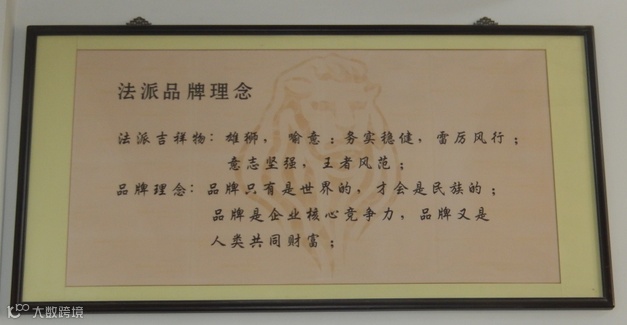 法派品牌理念
法派吉祥物：雄狮，喻意：务实稳健，雷厉风行；
意志坚强，王者风范；
品牌理念：品牌只有是世界的，才会是民族的；
品牌是企业核心竞争力，品牌又是
人类共同财富；
大数跨境